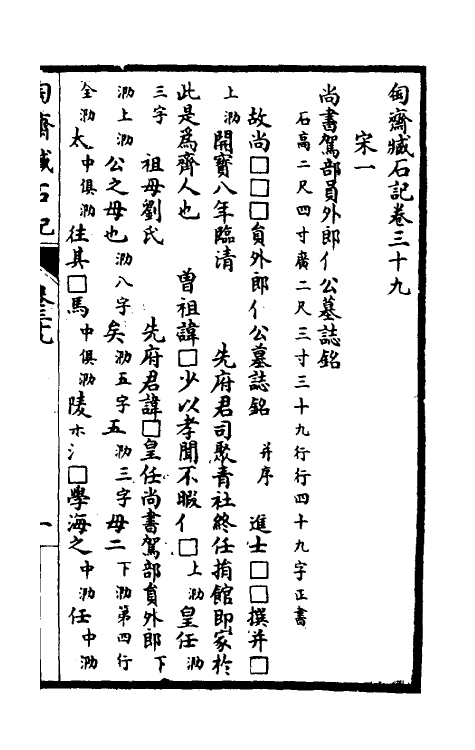 匋齋臧石記卷三十九
宋一
尚書駕部員外郎亻公墓誌銘
石高二尺四寸廣二尺三寸三十九行行四十九字正書
故尚□□□負外郎亻公墓誌銘 并序 進士□□撰并□
上泐 開寶八年臨清 先府君司聚青社終任捐館即家於
此是爲齊人也 曾祖諱□少以孝聞不暇亻□ 上泐 皇任 泐
三字 祖母劉氏 先府君諱□皇任尚書駕部負外郎 下
泐上泐 公之母也 泐八字 矣 泐五字 五 泐三字 母二 下泐第四行
全泐 太 中俱泐 往其□馬 中俱泐 陵 氵□學海之 中泐 任 中泐
匋齋臧石記 卷三十九 一